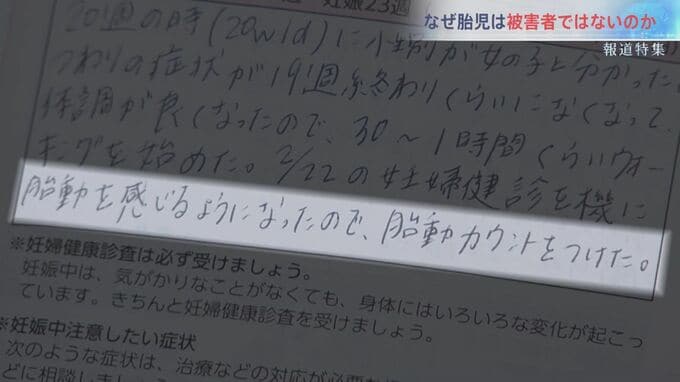 なぜ胎児は被害者ではないのか
報道特集
妊娠23週
20週の時(20w1d)に性別が女の子と分かった。
つわりの症状が19週終わりくらいになくなって、
体調が良くなったので、30~1時間くらいウォー
キングを始めた。2/22の妊婦健診を機に
胎動を感じるようになったので、胎動カウントをつけた。
※妊婦健康診査は必ず受けましょう。
妊娠中は、気がかりなことがなくても、身体にはいろいろな変化が起こっ
ています。きちんと妊婦健康診査を受けましょう。
※妊娠中注意したい症状
次のような症状は、治療などの対応が必要な
どに相談しましょ